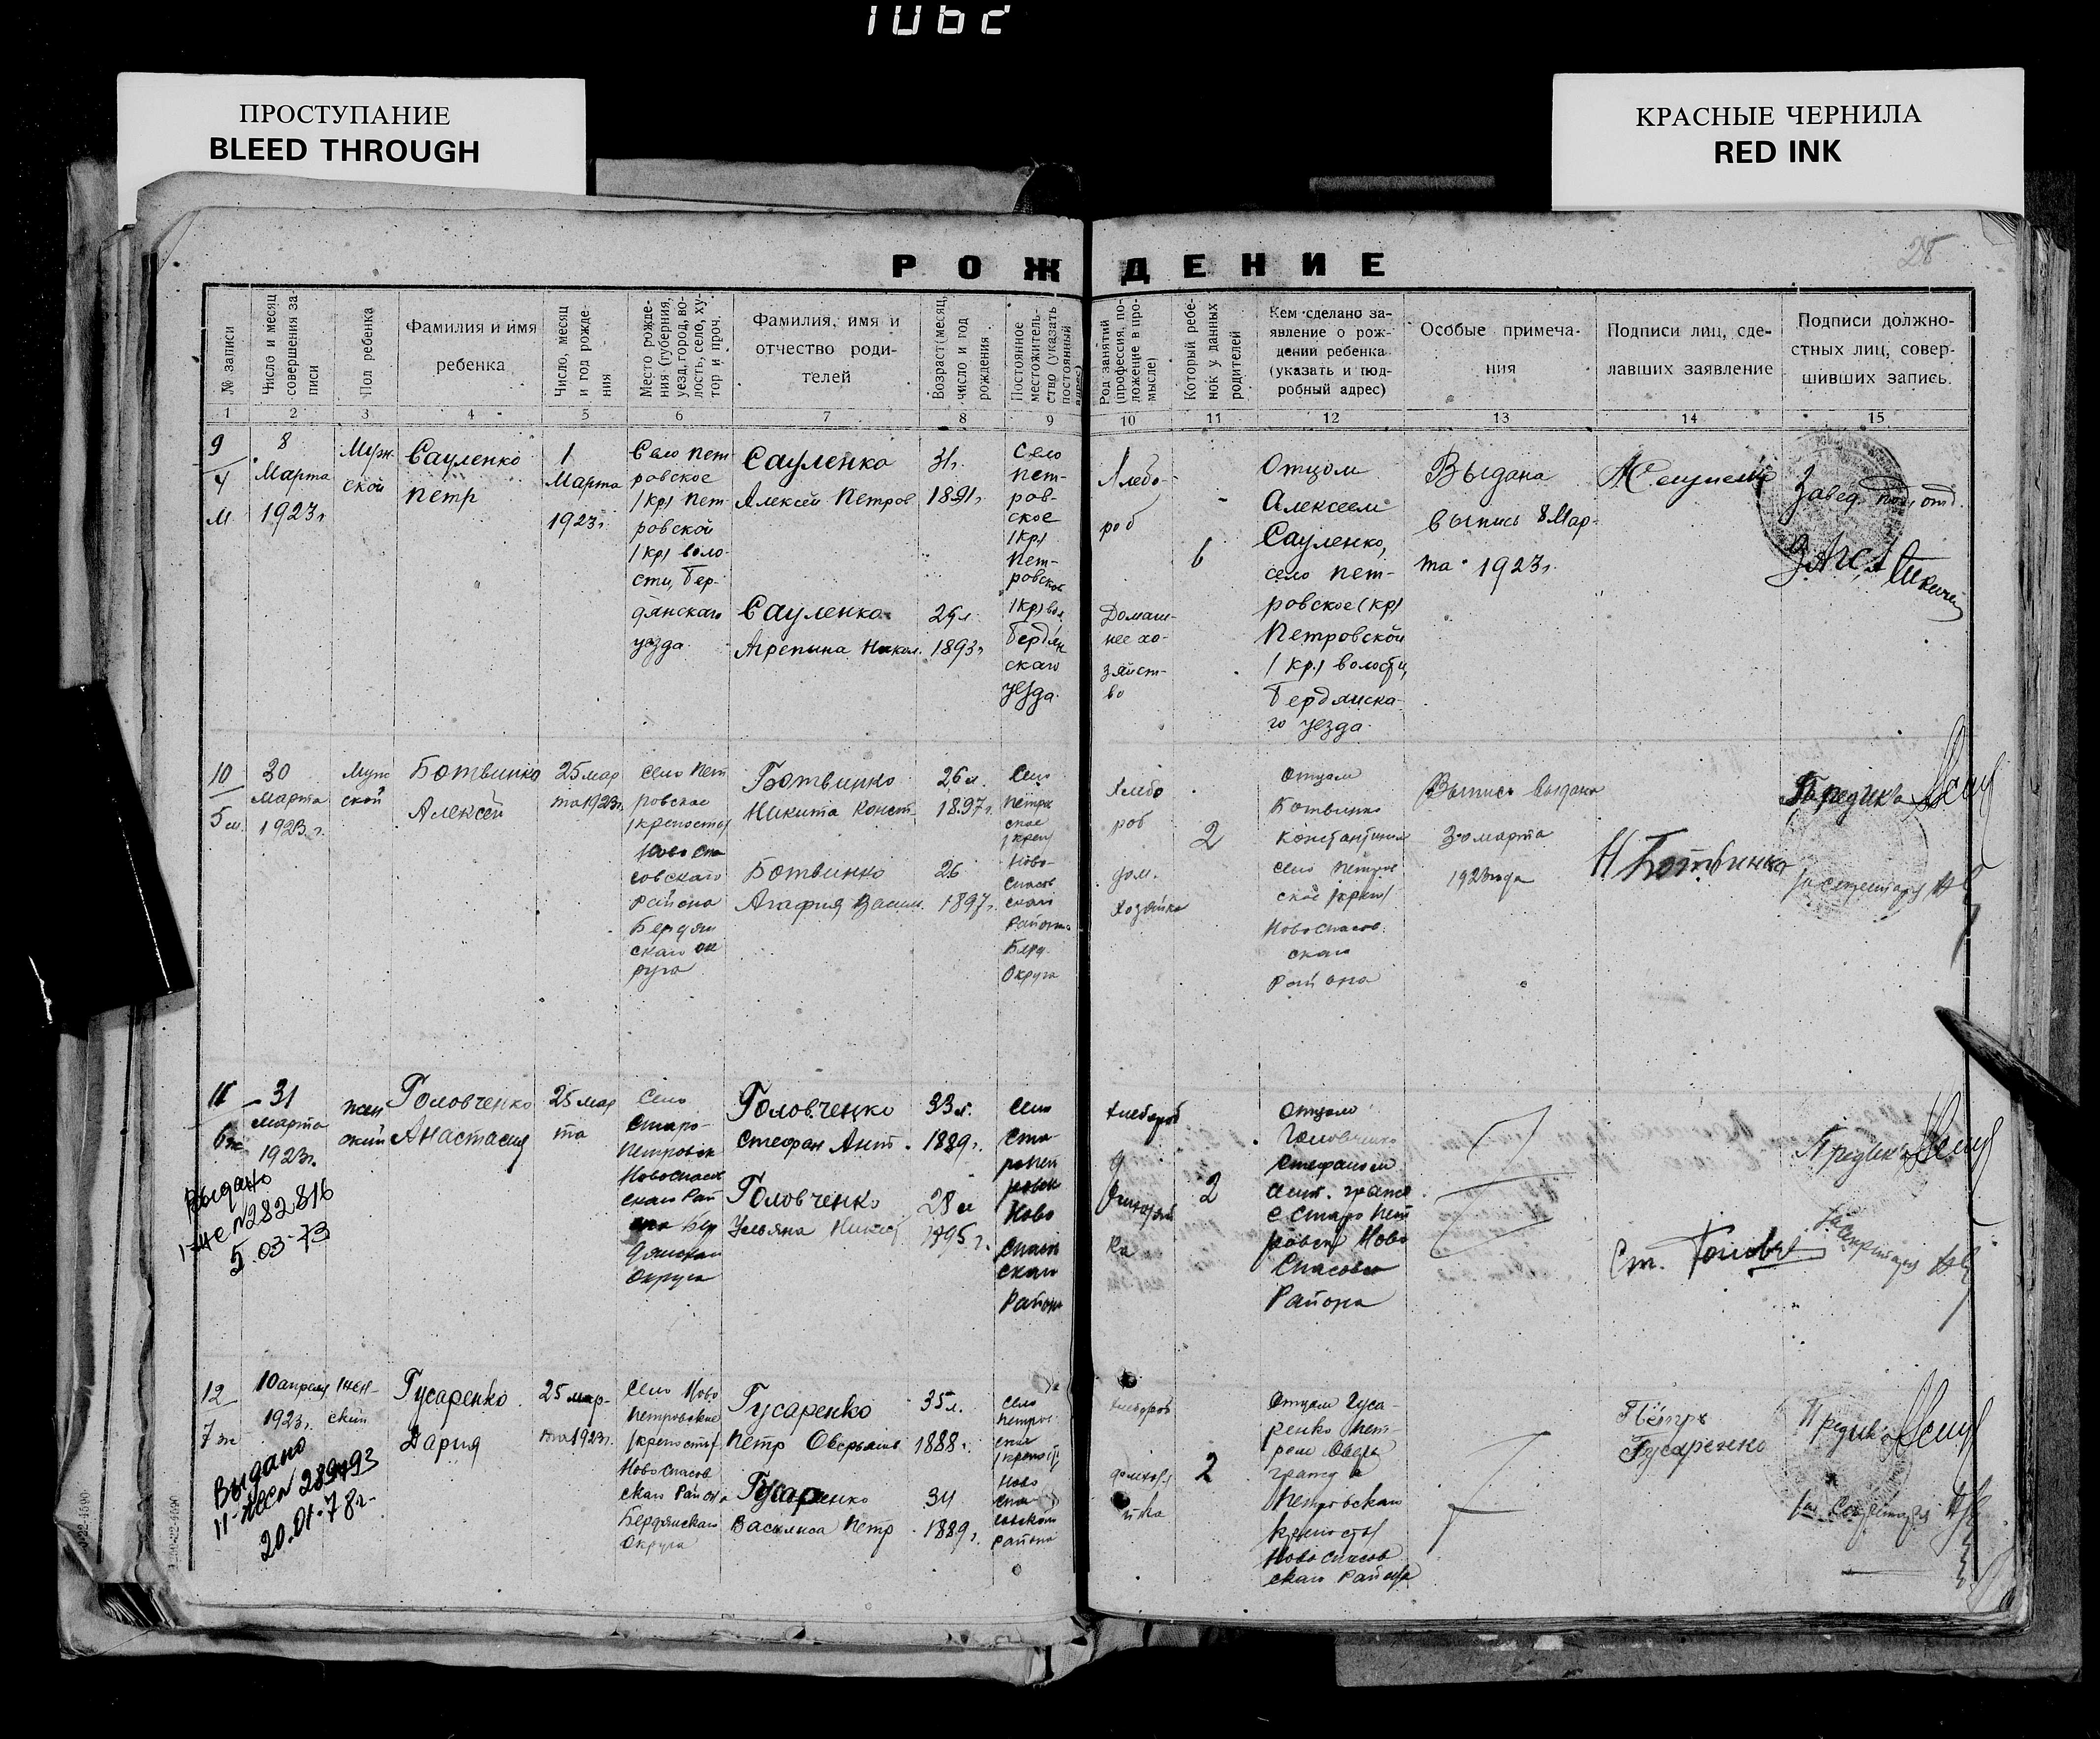 1062
ПРОСТУПАНИЕ
BLEED THROUGH
КРАСНЫЕ ЧЕРНИЛА
RED INK
28
РОЖДЕНИЕ
№ записи
Число и месяц
совершения за-
писи
Пол ребенка
Фамилия и имя
ребенка
Число, месяц
и год рожде-
ния
Место рожде-
ния (губерния,
уезд, город, во-
лость, село, ху-
тор и проч.
Фамилия, имя и
отчество роди-
телей
Возраст (месяц,
число и год
рождения
Постоянное
местожитель-
ство (указать
постоянный
адрес)
Род занятий
(профессия, по-
ложение в про-
мысле)
Который ребе-
нок у данных
родителей
Кем сделано за-
явление о рож-
дении ребенка
(указать и под-
робный адрес)
Особые примеча-
ния
Подписи лиц, сде-
лавших заявление
Подписи должно-
стных лиц, совер-
шивших запись.
1 2 3 4 5 6 7 8 9 10 11 12 13 14 15
9
4
м
8
Марта
1923г
Муж
ской
Сауленко
Петр
1
Марта
1923г.
Село Пет
ровское
/кр/ Пет
ровской
/кр/ воло-
сти, Бер-
дянскаго
уезда
Сауленко
Алексей Петров
Сауленко
Агрепина Никол.
31г.
1891г
29л
1893г
Село
Пет-
ров-
ское
/кр/
Пет-
ровской
/кр/ вол
Бердян
скаго
уезда.
Хлебо-
роб
Домаш-
нее хо-
зяйст-
во
6
Отцом
Алексеем
Сауленко,
село Пет-
ровское (кр)
Петровской
/кр/ волости,
Бердянска-
го уезда.
Выдана
выпись 8 Мар-
та 1923г.
Завед. под. отд.
ЗАГСА
10
5 м.
30
марта
1923 г.
Муж
ской
Ботвинко
Алексей
25 мар
та 1923г.
Село Пет
ровское
/крепость/
Ново Спа
совскаго
района
Бердян
скаго ок
руга
Ботвинко
Никита Конст.
Ботвинко
Агафия Васил.
26 л.
1897г.
26
1897г.
Село
Петров
ское
/креп/
Ново-
Спасов
скаго
Района
Берд.
Округа
Хлебо
роб
дом.
Хозяйка
2
Отцом
Ботвинко
Константином
село Петров
ское /креп/
Новоспасов
скаго
Района
Выпись выдана
30 марта
1923 года
Н Ботвинко
Предик'а
за секретаря
11
6 ж
31
марта
1923г.
жен
ский
Головченко
Анастасия
25 мар
та
Село
Старо-
Петровск
Новоспасов
скаго Рай
она Бер
дянскаго
Округа
Головченко
Стефан Ант.
Головченко
Ульяна Никиф
33 л.
1889г.
28 л
1895 г.
Село
Ста-
ропет
ровск
Ново
Спасов
скаго
Района
Хлебороб
2
Отцом
Головченко
Стефаном
Ант. гражд
с Старо Пет
ровск Ново
Спасовск
Района
Ст. Головч
Предик'а
за Секретаря
Выдано
№282816
5.03-73
12
7 ж
10 апреля
1923г.
жен-
ский
Гусаренко
Дария
25 мар-
та 1923г.
Село Ново
Петровское
/крепость/
Новоспасов
скаго Района
Бердянскаго
Округа
Гусаренко
Петр Оверьянов
Гусаренко
Василиса Петр
35 л.
1888г.
34
1889г.
Село
Петров
ское
/крепость/
Ново
Спа
совскаго
района
Хлебороб
домхозя
йка
2
Отцом Гуса-
ренко Пет-
ром Оверья
гражд с
Петровскаго
крепость
Новоспасов
скаго Района
Пётр
Гусаренко
Предик'а
за Секретаря
Выдано
11-ЖС № 289493
20.01.78г.